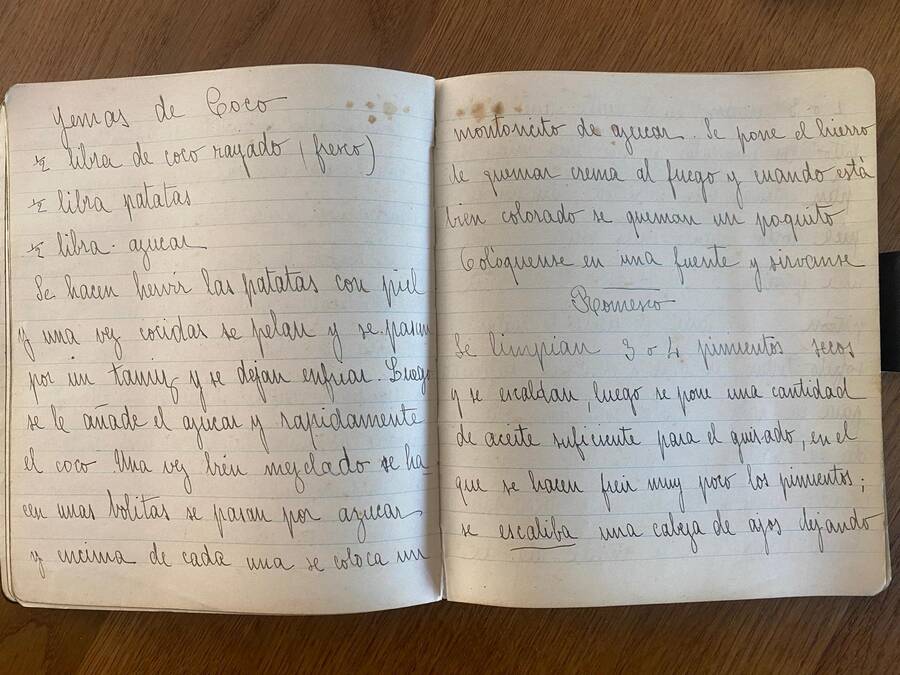 Yemas de Coco
½ libra de coco rayado (fresco)
½ libra patatas
½ libra azucar
Se hacen hervir las patatas con piel
y una vez cocidas se pelan y se pasan
por un tamiz y se dejan enfriar. Luego
se le añade el azucar y rapidamente
el coco Una vez bién mezclado se ha
cen unas bolitas se pasan por azucar
y encima de cada una se coloca un
montoncito de azucar. Se pone el hierro
de quemar crema al fuego y cuando está
bien colorado se queman un poquito
Cóloquense en una fuente y sirvanse
Romesco
Se limpian 3 o 4 pimientos secos
y se escaldan, luego se pone una cantidad
de aceite suficiente para el guisado, en el
que se hacen freir muy poco los pimientos;
se escaliba una cabeza de ajos dejando